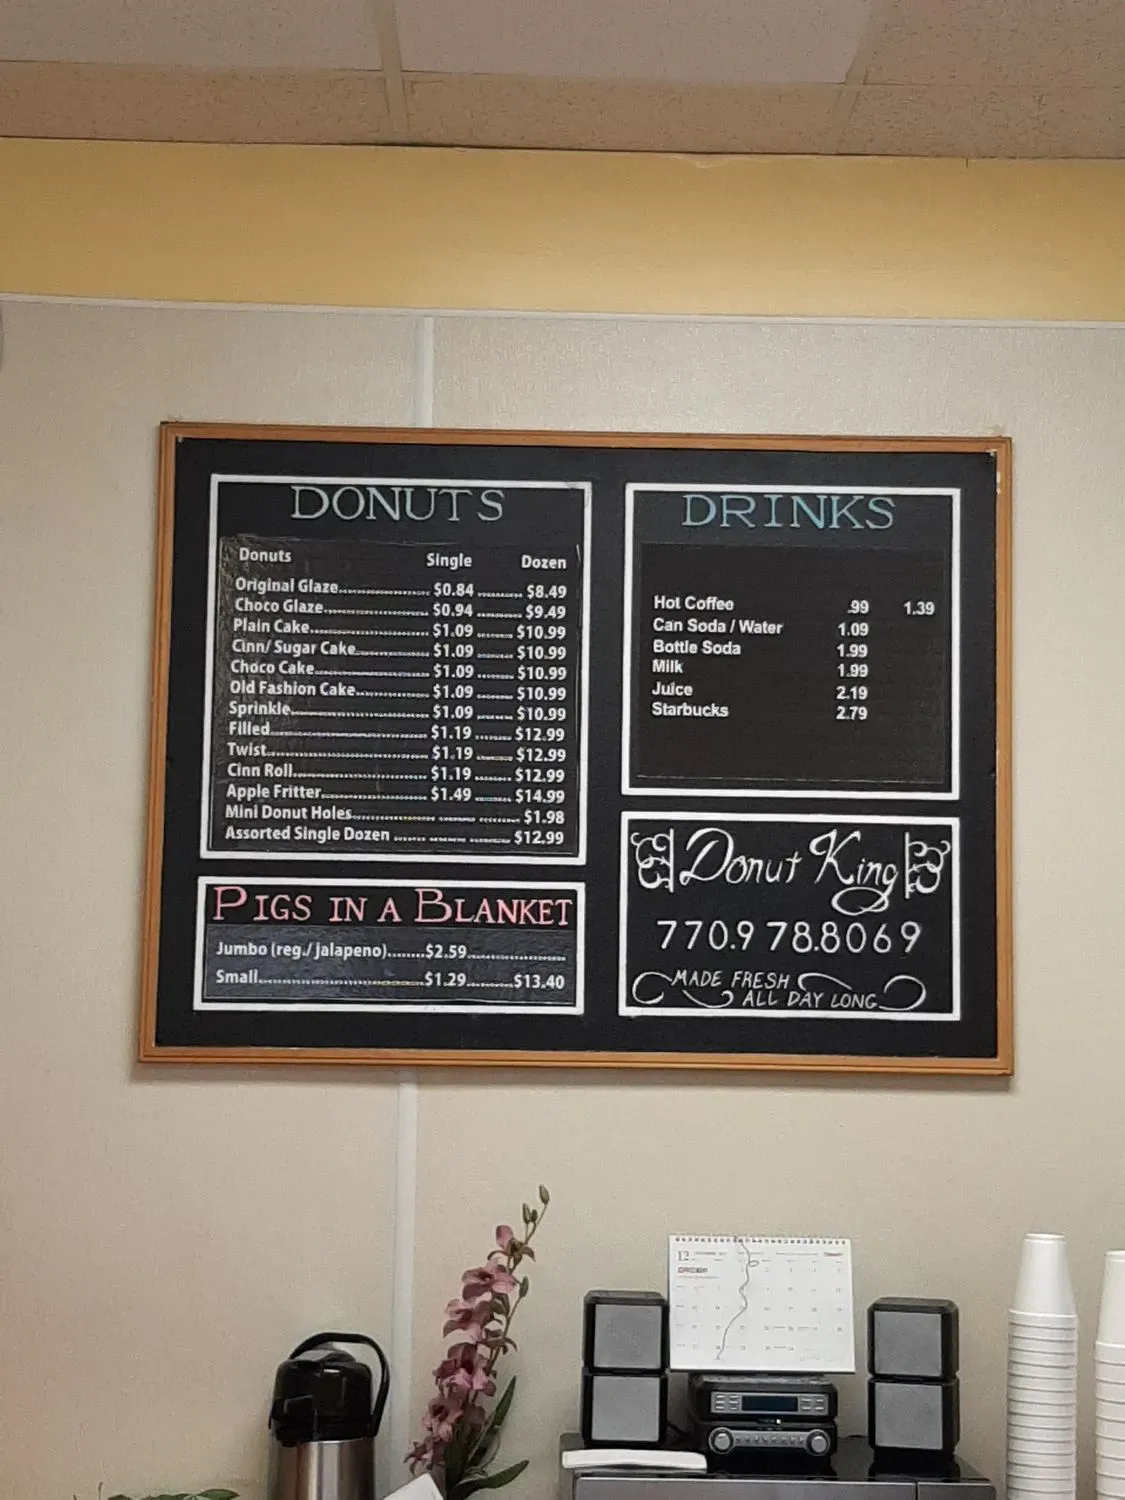 DONUTS
Donuts Single Dozen
Original Glaze $0.84 $8.49
Choco Glaze $0.94 $9.49
Plain Cake $1.09 $10.99
Cinn/ Sugar Cake $1.09 $10.99
Choco Cake $1.09 $10.99
Old Fashion Cake $1.09 $10.99
Sprinkle $1.09 $10.99
Filled $1.19 $12.99
Twist $1.19 $12.99
Cinn Roll $1.19 $12.99
Apple Fritter $1.49 $14.99
Mini Donut Holes $1.98
Assorted Single Dozen $12.99
PIGS IN A BLANKET
Jumbo (reg./ jalapeno) $2.59
Small $1.29 $13.40
DRINKS
Hot Coffee .99 1.39
Can Soda / Water 1.09
Bottle Soda 1.99
Milk 1.99
Juice 2.19
Starbucks 2.79
Donut King
770.978.8069
MADE FRESH
ALL DAY LONG
12